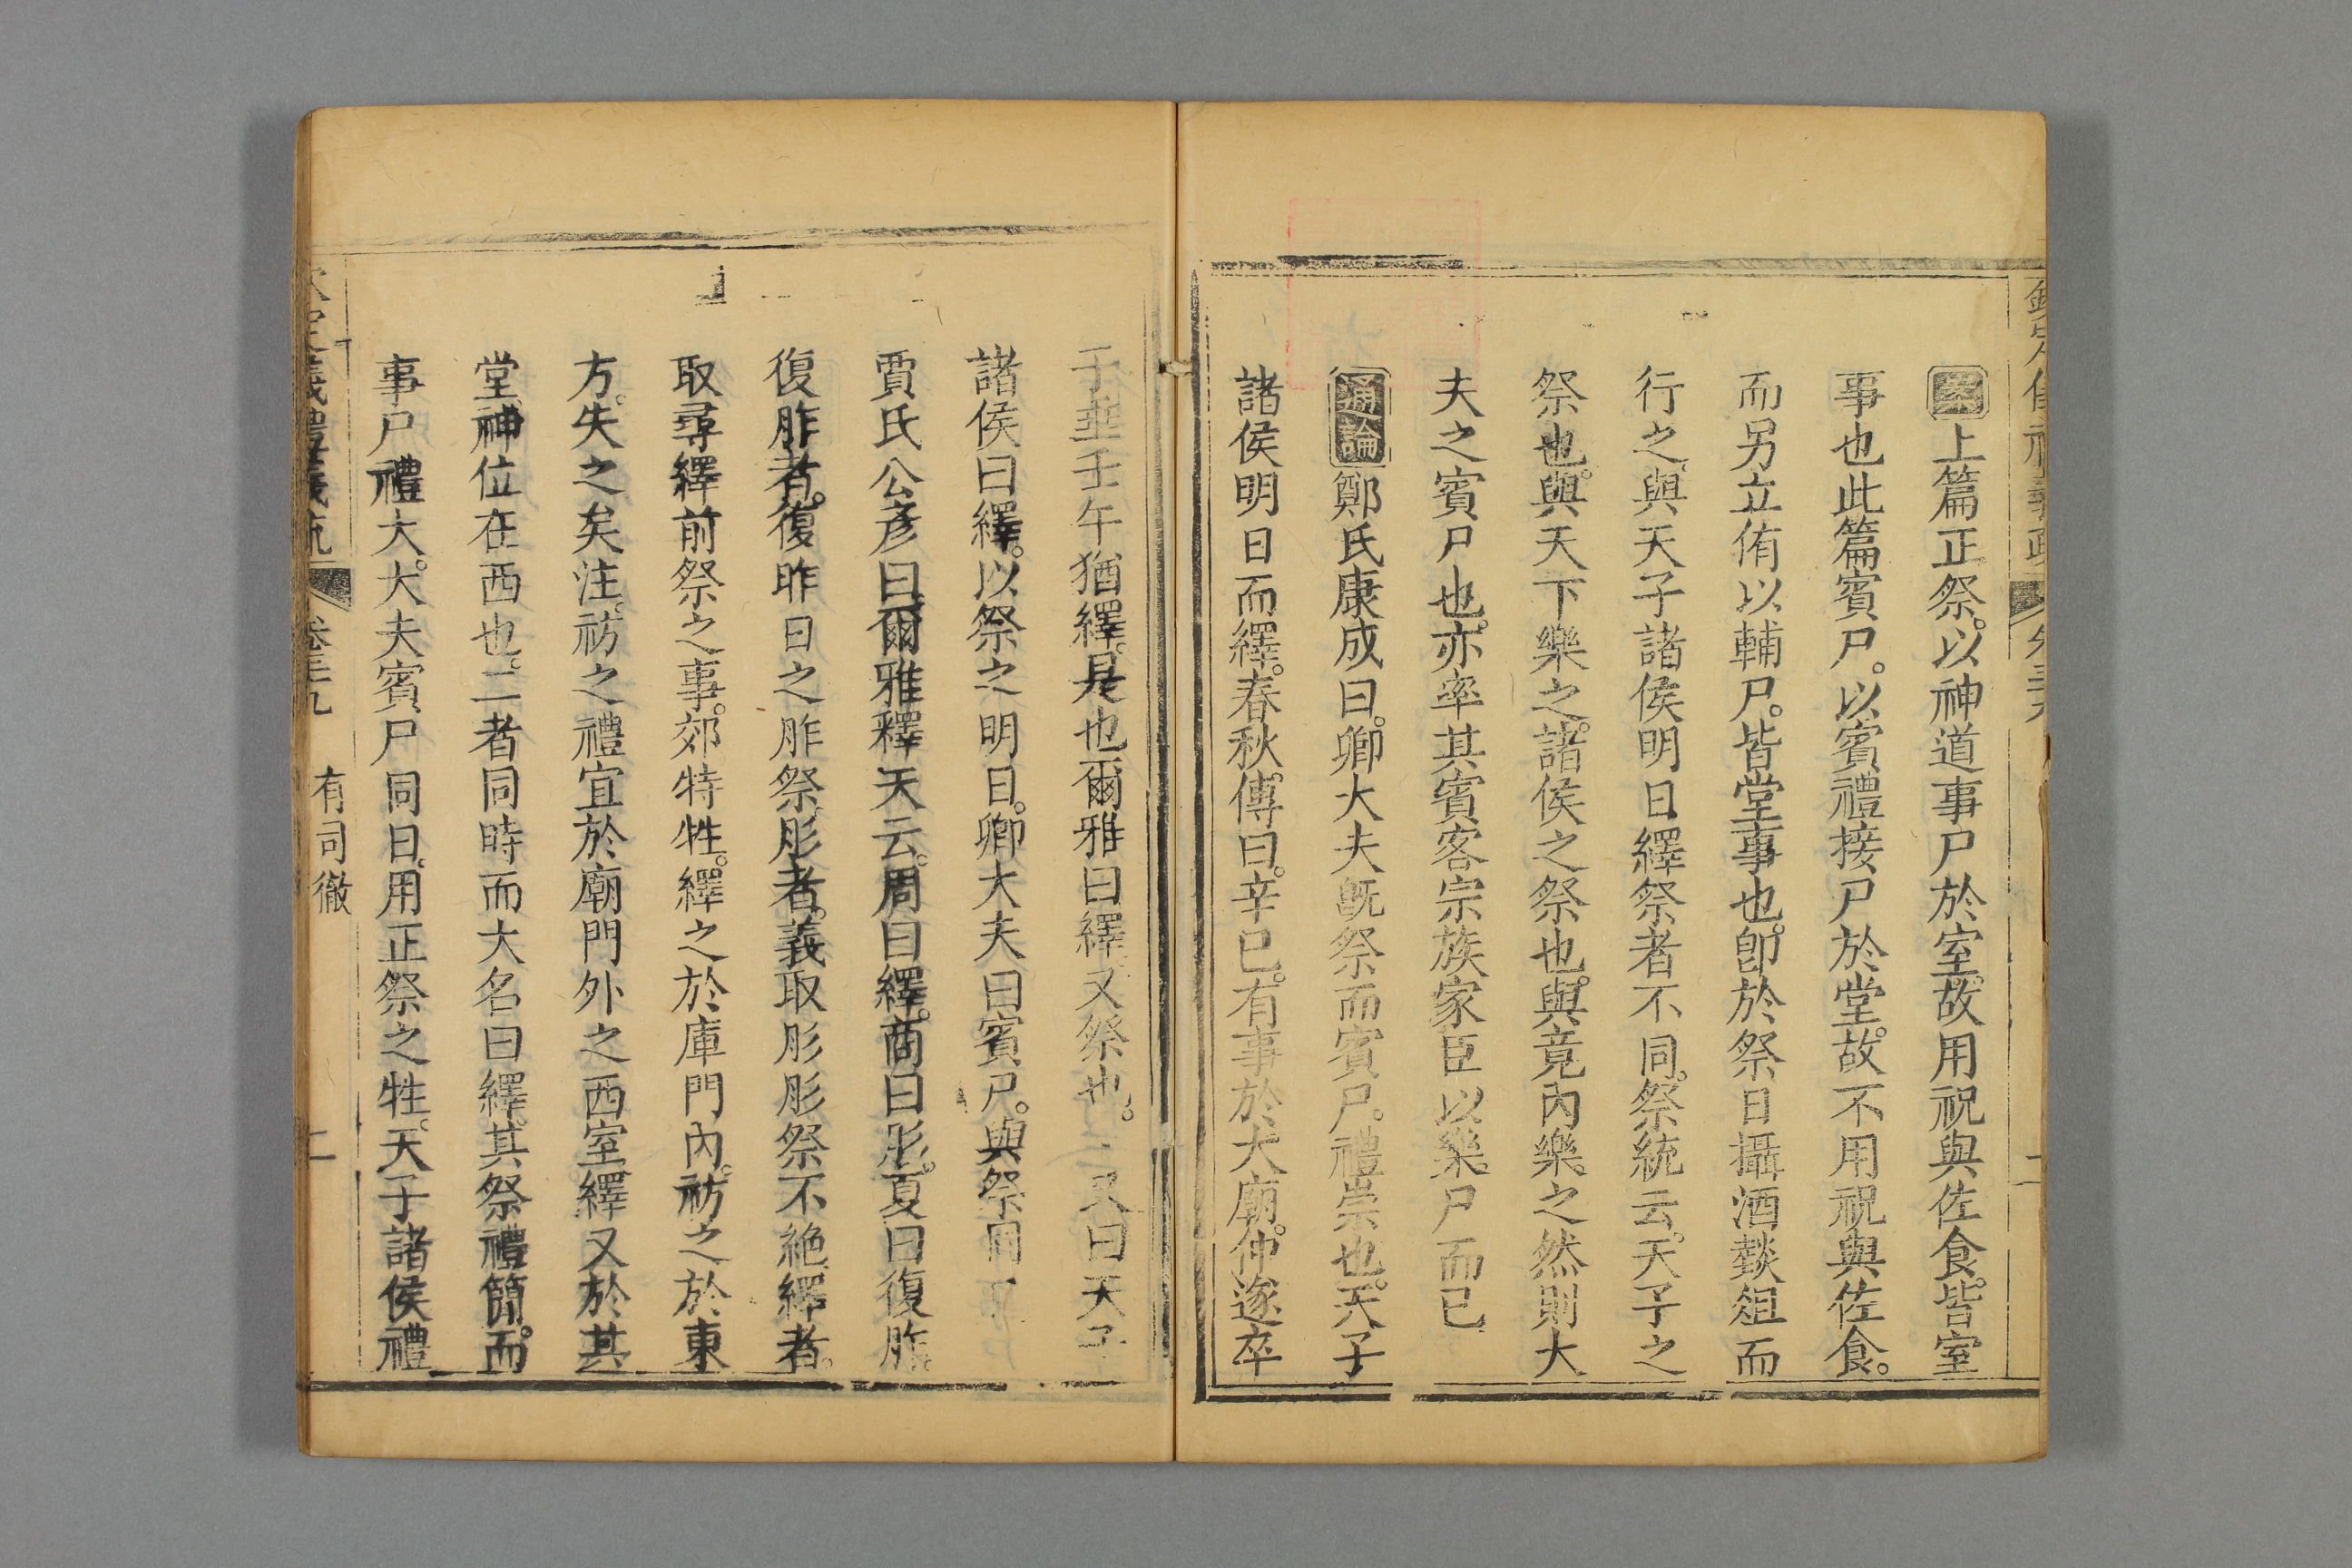 案上篇正祭。以神道事尸於室。故用祝與佐食。皆室
事也此篇賓尸。以賓禮接尸於堂。故不用祝與佐食。
而另立侑以輔尸。皆堂事也。卽於祭日攝酒燅俎而
行之。與天子諸侯明日繹祭者不同。祭統云。天子之
祭也。與天下樂之。諸侯之祭也。與竟內樂之然則大
夫之賓尸也。亦率其賓客宗族家臣以樂尸而已
通論鄭氏康成曰。卿大夫旣祭而賓尸。禮崇也。天子
諸侯明日而繹。春秋傳曰。辛巳。有事於大廟。仲遂卒
于垂壬午猶繹。是也爾雅曰繹又祭也。又曰天子
諸侯曰繹。以祭之明日。卿大夫曰賓尸。與祭同
賈氏公彥曰爾雅釋天云。周曰繹。商曰肜。夏曰復胙。
復胙者。復昨日之胙祭肜者。義取肜肜祭不絶繹者。
取尋繹前祭之事。郊特牲。繹之於庫門內。祊之於東
方。失之矣注。祊之禮宜於廟門外之西室繹又於其
堂。神位在西也。二者同時而大名曰繹。其祭禮簡。而
事尸禮大。大夫賓尸同日。用正祭之牲。天子諸侯禮
欽定儀禮義疏 卷三十九 有司徹 二